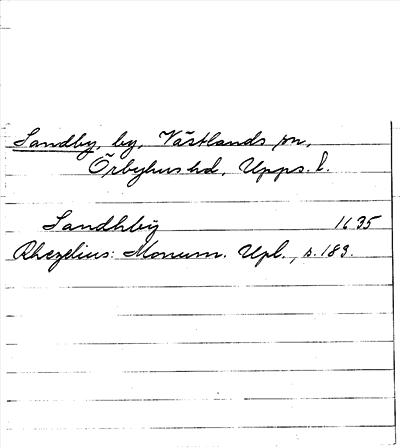 Sandby, by, Västlands sn,
Örbyhus hd, Upps. l.
Sandhbÿ 1635
Rhezelius: Monum. Upl., s. 183.